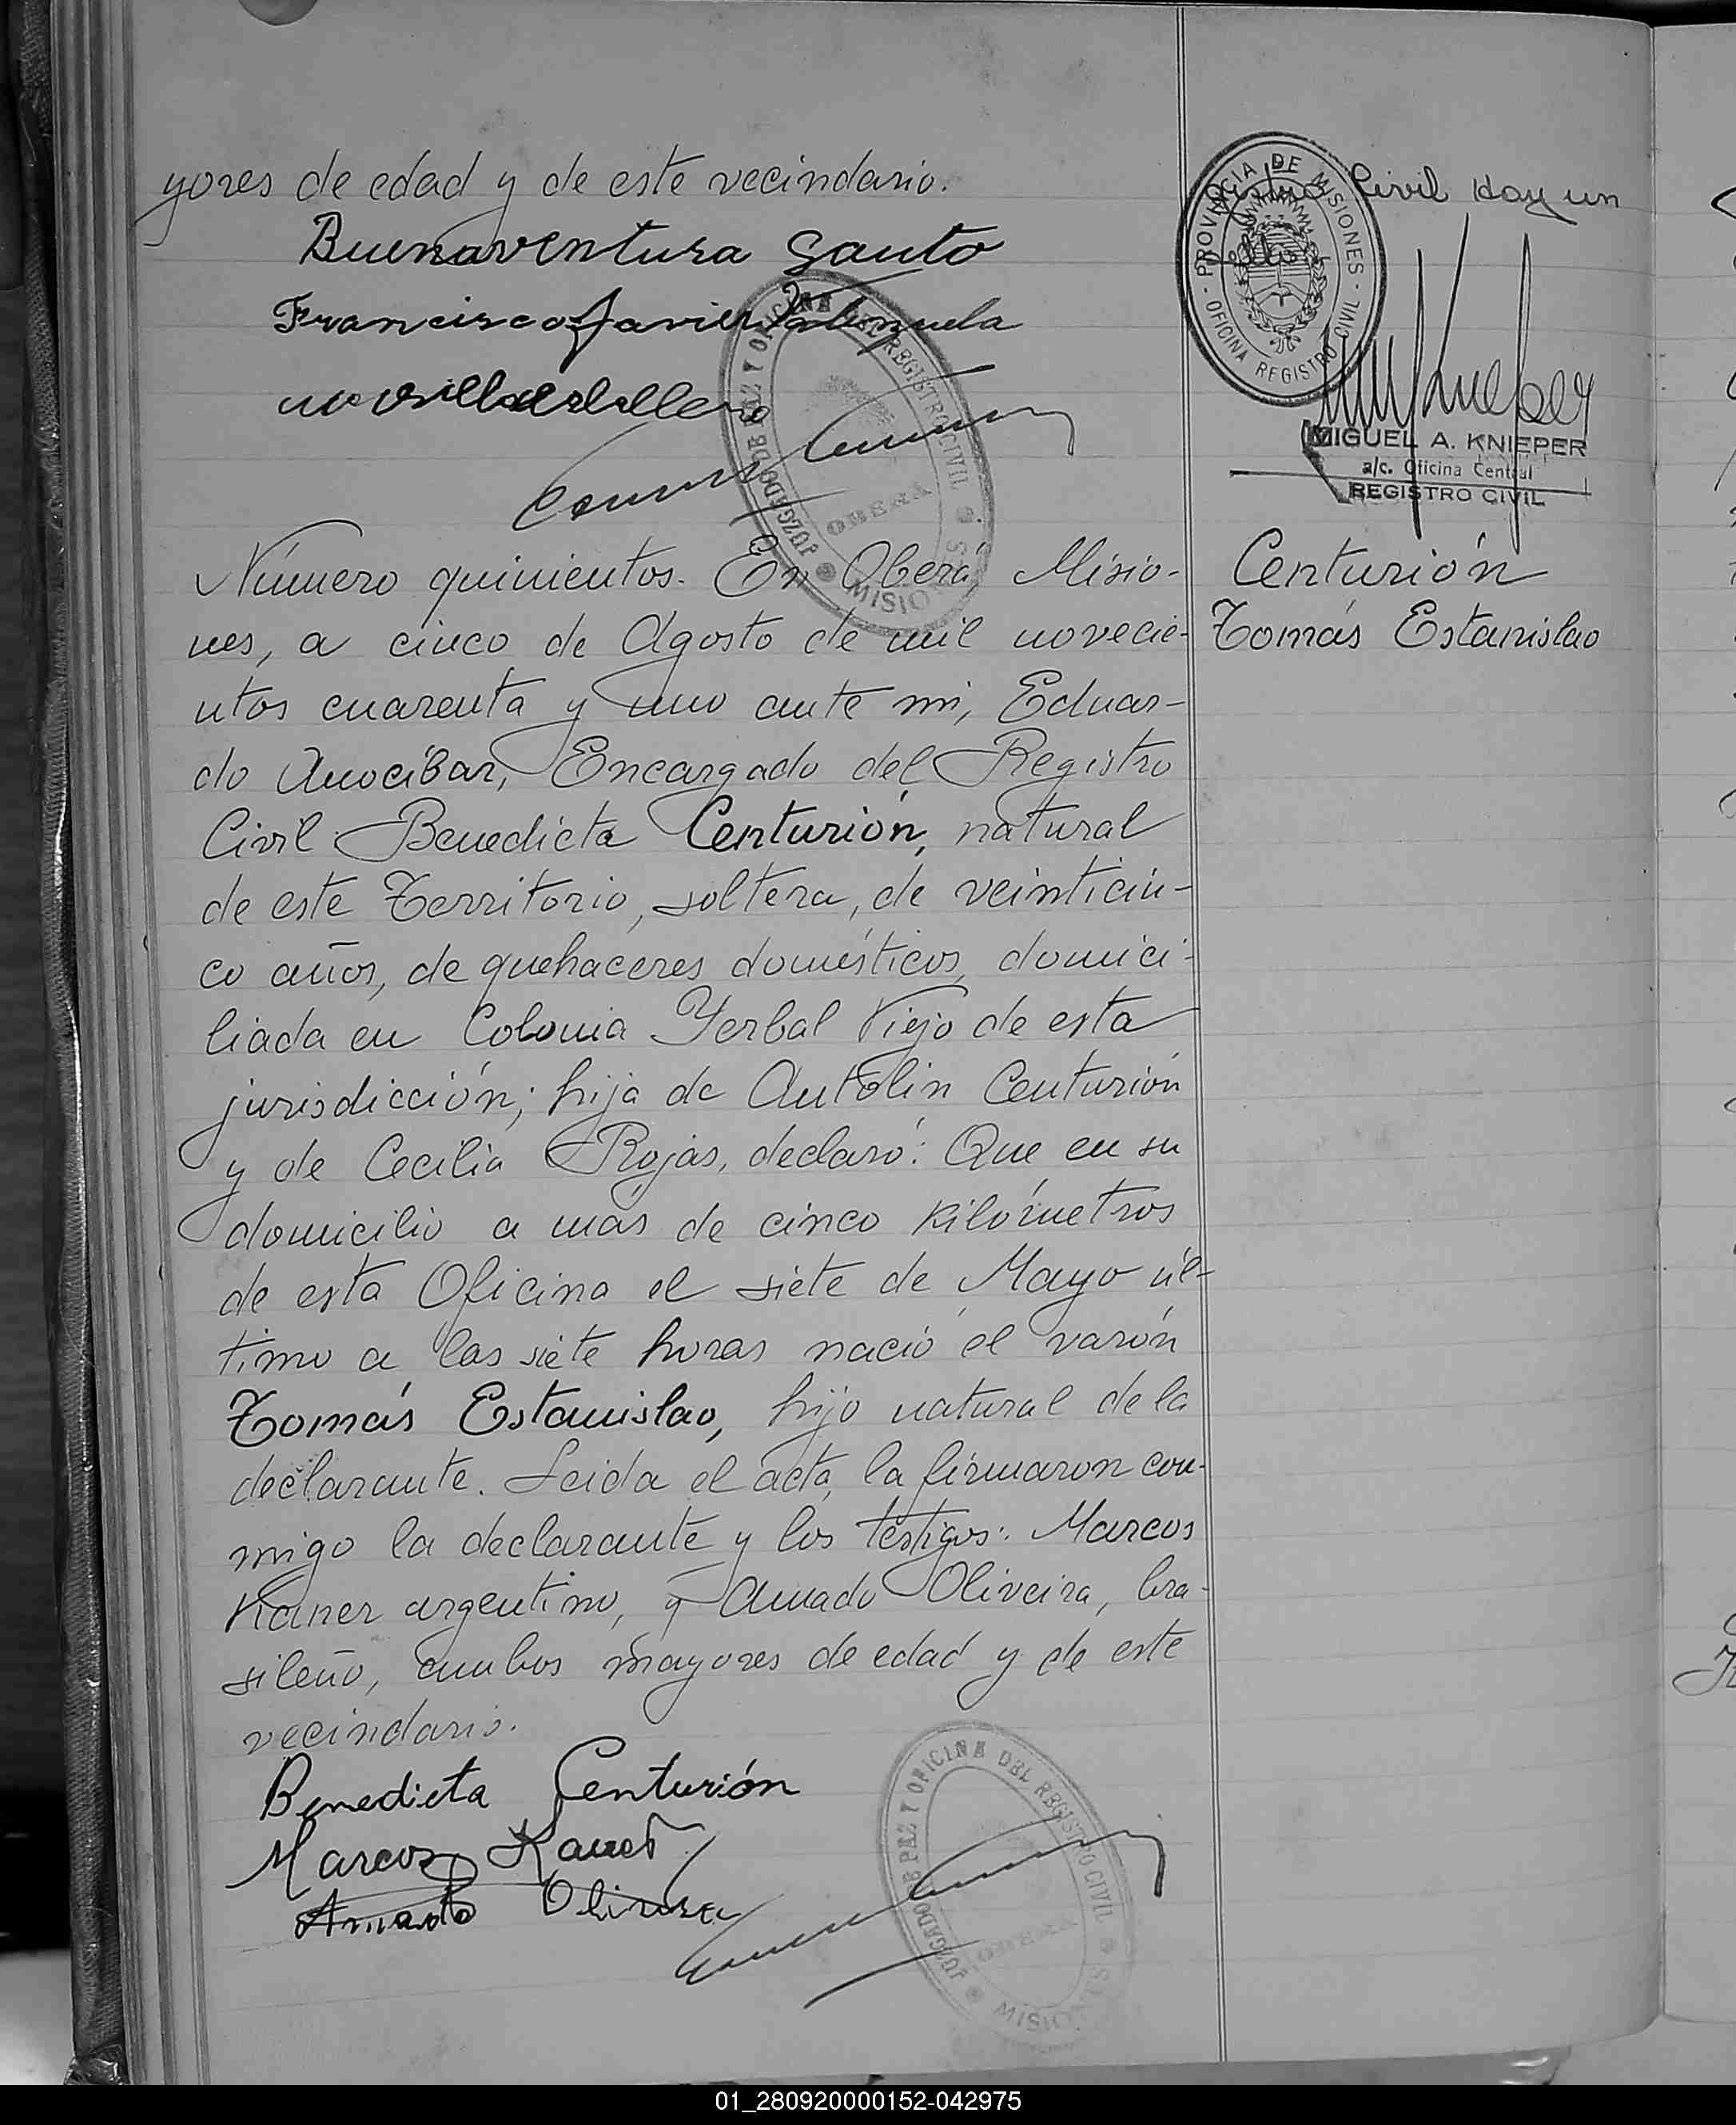 yores de edad y de este vecindario.
Buenaventura Santo
Francisco Javier Valenzuela
Número quinientos. En Oberá, Misio-
nes, a cinco de Agosto de mil novecie-
ntos cuarenta y uno ante mi, Eduar-
do Anocíbar, Encargado del Registro
Civil Benedicta Centurión, natural
de este Territorio, soltera, de veinticin-
co años, de quehaceres domésticos, domici-
liada en Colonia Yerbal Viejo de esta
jurisdicción; hija de Antolín Centurión
y de Cecilia Rojas, declaró: Que en su
domicilio a más de cinco kilómetros
de esta Oficina el siete de Mayo úl-
timo a las siete horas nació el varón
Tomás Estanislao, hijo natural de la
declarante. Leida el acta, la firmaron con-
migo la declarante y los testigos: Marcos
Kaner argentino, y Amado Oliveira, bra-
sileño, ambos mayores de edad y de este
vecindario.
Benedicta Centurión
Marcos Kaner
Amado Olivera
JUZGADO DE PAZ Y OFICINA DEL REGISTRO CIVIL
OBERA
MISIONES
JUZGADO DE PAZ Y OFICINA DEL REGISTRO CIVIL
OBERA
MISIONES
Civil Hay un
sello
PROVINCIA DE MISIONES
OFICINA REGISTRO CIVIL
MIGUEL A. KNIEPER
a/c. Oficina Central
REGISTRO CIVIL
Centurión
Tomás Estanislao
01_280920000152-042975